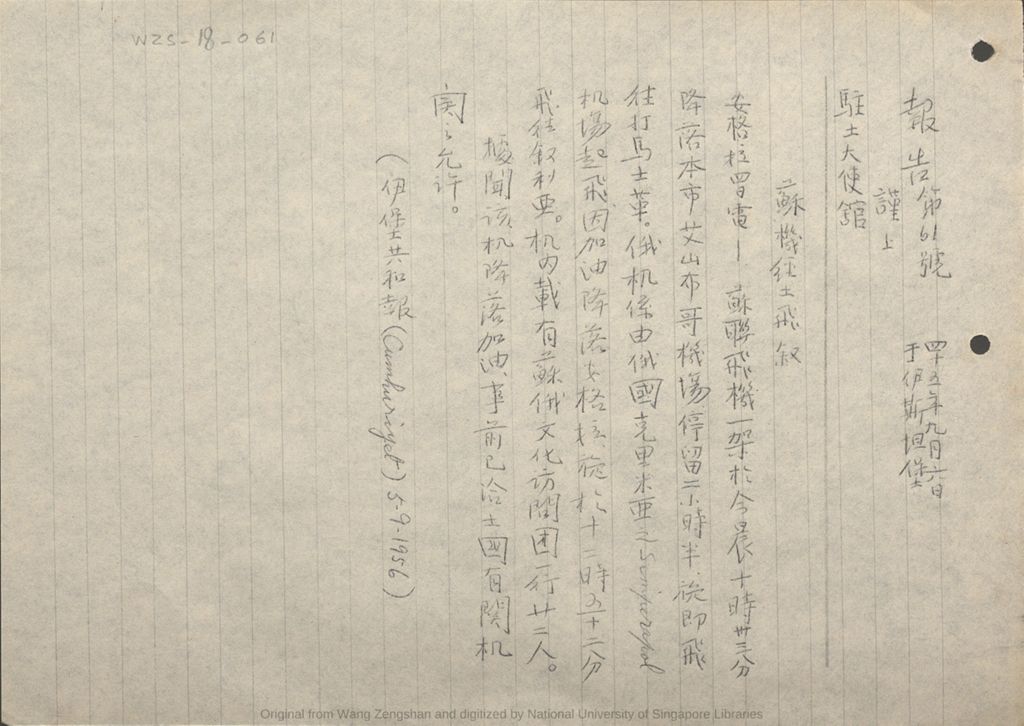 WZS-18-061
報告第61號
四十五年九月六日
于伊斯坦堡
謹上
駐土大使館
蘇機經土飛叙
安格拉四日電—蘇聯飛機一架於今晨十時卅三分
降落本市艾山布哥機場停留二小時半,旋即飛
往打馬士革。俄机係由俄國克里米亞之Simferopol
机場起飛因加油降落安格拉,旋於十二時五十二分
飛往叙利亜。机内載有蘇俄文化访問团一行廿二人。
據聞該机降落加油,事前已洽土國有関机
関之允许。
(伊堡共和報(Cumhuriyet) 5-9-1956)
Original from Wang Zengshan and digitized by National University of Singapore Libraries